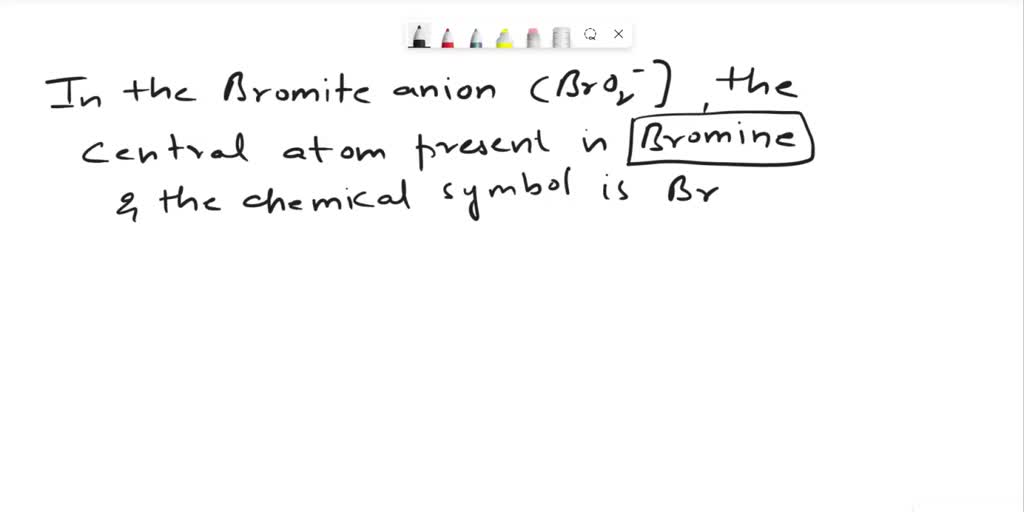 In the Bromite anion (BrO₂⁻], the
central atom present in Bromine
& the chemical symbol is Br